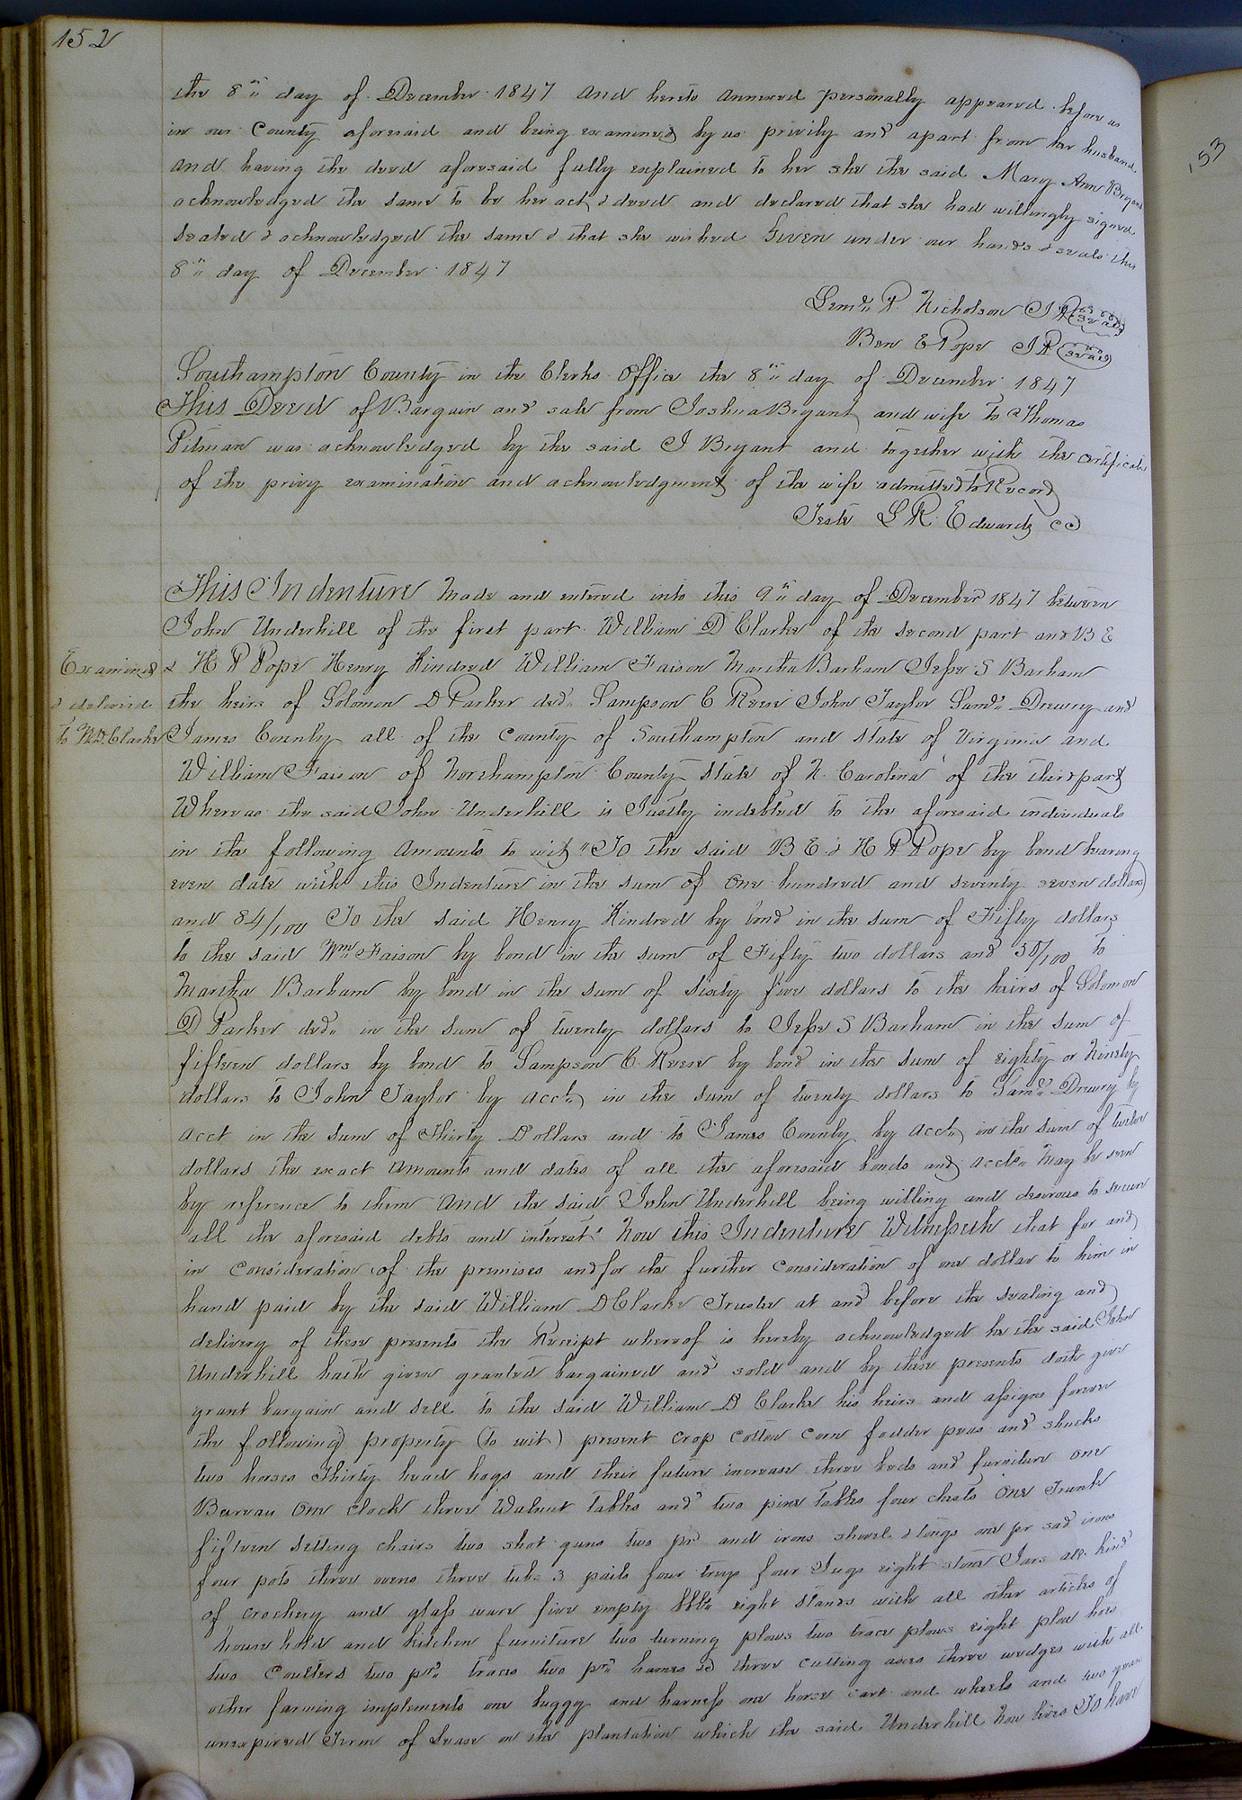 152
the 8th day of December 1847 and hereto annexed personally appeared before us
in our County aforesaid and being examined by us privily and apart from her husband
and having the deed aforesaid fully explained to her she the said Mary Ann Bryant
acknowledged the same to be her act & deed and declared that she had willingly signed
sealed & acknowledged the same & that she wished Given under our hands & seals this
8th day of December 1847
Nicholson JP seal
Ben E Pope JP seal
Southampton County in the Clerks Office the 8th day of December 1847
This Deed of Bargain and sale from Joshua Bryant and wife to Thomas
Pitman was acknowledged by the said J Bryant and together with the certificate
of the privy examination and acknowledgment of the wife admitted to Record
Teste L R Edwards CC
This Indenture Made and entered into this 9th day of December 1847 between
John Underhill of the first part William D Clarke of the second part and B E
& H P Pope Henry Kindred William Faison Martha Barham Jesse S Barham
the heirs of Solomon D Parker decd Sampson C Reese John Taylor Saml Drewry and
James Connly all of the County of Southampton and State of Virginia and
William Faison of Northampton County State of N. Carolina of the third part
Whereas the said John Underhill is Justly indebted to the aforesaid individuals
in the following Amounts to wit To the said B E & H P Pope by bond bearing
even date with this Indenture in the sum of one hundred and seventy seven dollars
and 84/100 To the said Henry Kindred by bond in the sum of Fifty dollars
to the said Wm Faison by bond in the sum of Fifty two dollars and 50/100 to
Martha Barham by bond in the sum of sixty five dollars to the heirs of Solomon
D Parker decd in the sum of twenty dollars to Jesse S Barham in the sum of
fifteen dollars by bond to Sampson C. Reese by bond in the sum of eighty or Ninety
dollars to John Taylor by acct in the sum of twenty dollars to Saml Drewry by
acct in the sum of Thirty Dollars and to James Connly by acct in the sum of twelve
dollars the exact amounts and dates of all the aforesaid bonds and accts may be seen
by reference to them And the said John Underhill being willing and desirous to secure
all the aforesaid debts and interest Now this Indenture Witnesseth that for and
in consideration of the premises and for the further consideration of one dollar to him in
hand paid by the said William D Clarke Trustee at and before the sealing and
delivery of these presents the Receipt whereof is hereby acknowledged he the said John
Underhill hath given granted bargained and sold and by these presents doth give
grant bargain and sell to the said William D Clarke his heirs and assigns forever
the following property (to wit) present crop cotton corn fodder peas and shucks
two horses Thirty head hogs and their future increase three beds and furniture one
Bureau one clock three Walnut tables and two pine tables four chests one Trunk
fifteen setting chairs two shot guns two pr and irons shovel & tongs one pr sad irons
four pots three ovens three tubs 3 pails four trays four Jugs eight stone Jars all kind
of crockery and glass ware five empty bbls eight stands with all other articles of
house hold and kitchen furniture two turning plows two trace plows eight plow hoes
two Coulters two prs traces two prs hames three cutting axes three wedges with all
other farming implements one buggy and harness one horse cart and wheels and two years
unexpired Term of Lease on the plantation which the said Underhill now lives To have
Examined
& delivered
to WD Clarke
153